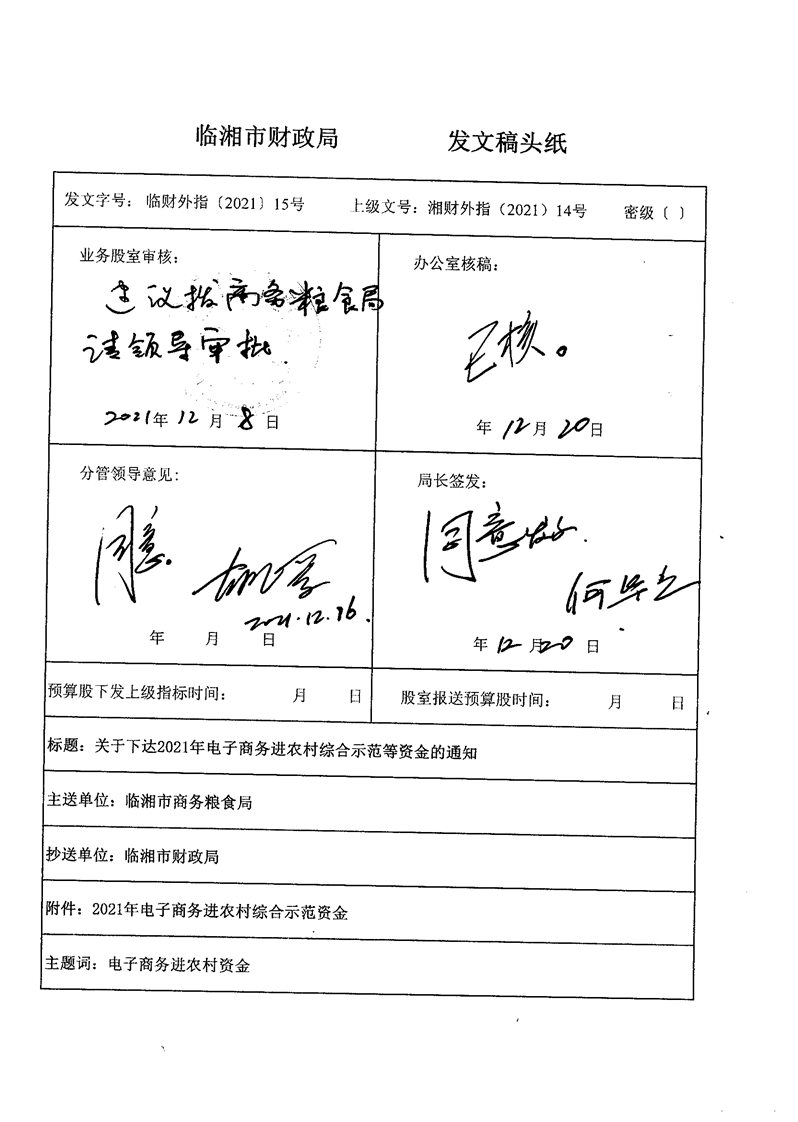 临湘市财政局 发文稿头纸
发文字号：临财外指〔2021〕15号 上级文号：湘财外指（2021）14号 密级〔 〕
业务股室审核：
建议拨商务粮食局
请领导审批.
2021年12月8日
办公室核稿：
已核。
年12月20日
分管领导意见：
同意.
2021.12.16.
年 月 日
局长签发：
同意发.
年12月20日
预算股下发上级指标时间： 月 日
股室报送预算股时间： 月 日
标题：关于下达2021年电子商务进农村综合示范等资金的通知
主送单位：临湘市商务粮食局
抄送单位：临湘市财政局
附件：2021年电子商务进农村综合示范资金
主题词：电子商务进农村资金